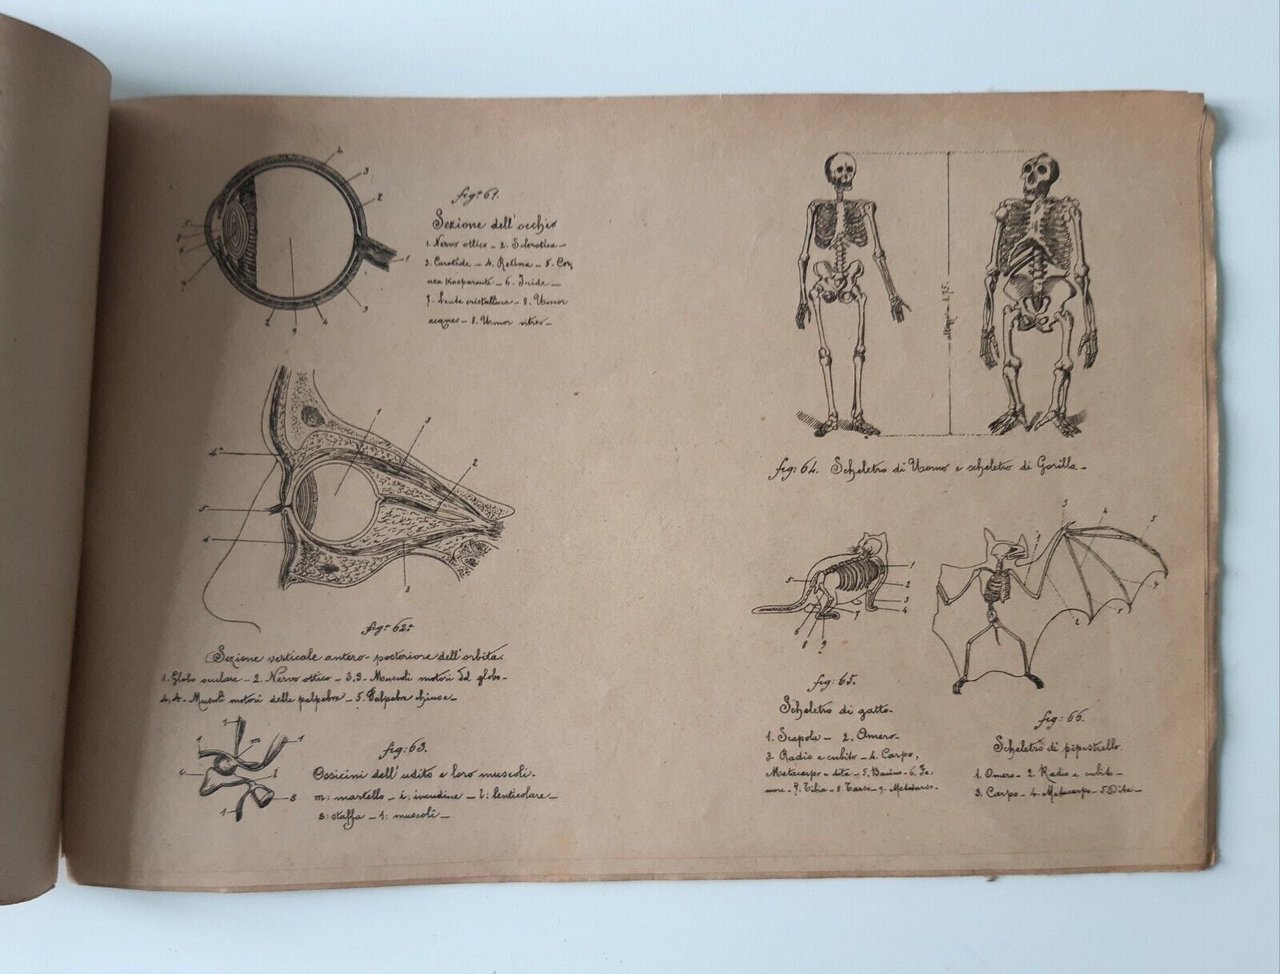 figª 61.
Sezione dell'occhio
1. Nervo ottico - 2. Sclerotica -
3. Corotide - 4. Retina - 5. Cor,
nea trasparente - 6. Iride -
7. Lente cristallina - 8. Umor
acqueo - 8. Umor vitreo -
figª 62ª
Sezione verticale antero-posteriore dell'orbita.
1. Globo oculare - 2. Nervo ottico - 3,3 - Muscoli motori del globo -
4,4 - Muscoli motori delle palpebre - 5. Palpebre chiuse -
fig: 63.
Ossicini dell'udito e loro muscoli -
m: martello - i: incudine - l: lenticolare -
s: staffa - 1: muscoli -
1.75.
fig: 64. Scheletro di Uomo e scheletro di Gorilla -
fig: 65.
Scheletro di gatto -
1. Scapola - 2. Omero -
3. Radio e cubito - 4. Carpo,
Metacarpo e dita - 5. Bacino - 6. Fe:
more - 7. Tibia - 8. Tarso - 9. Metatarso -
fig: 66.
Scheletro di pipistrello.
1. Omero - 2. Radio e cubito -
3. Carpo - 4. Metacarpo - 5. Dita -